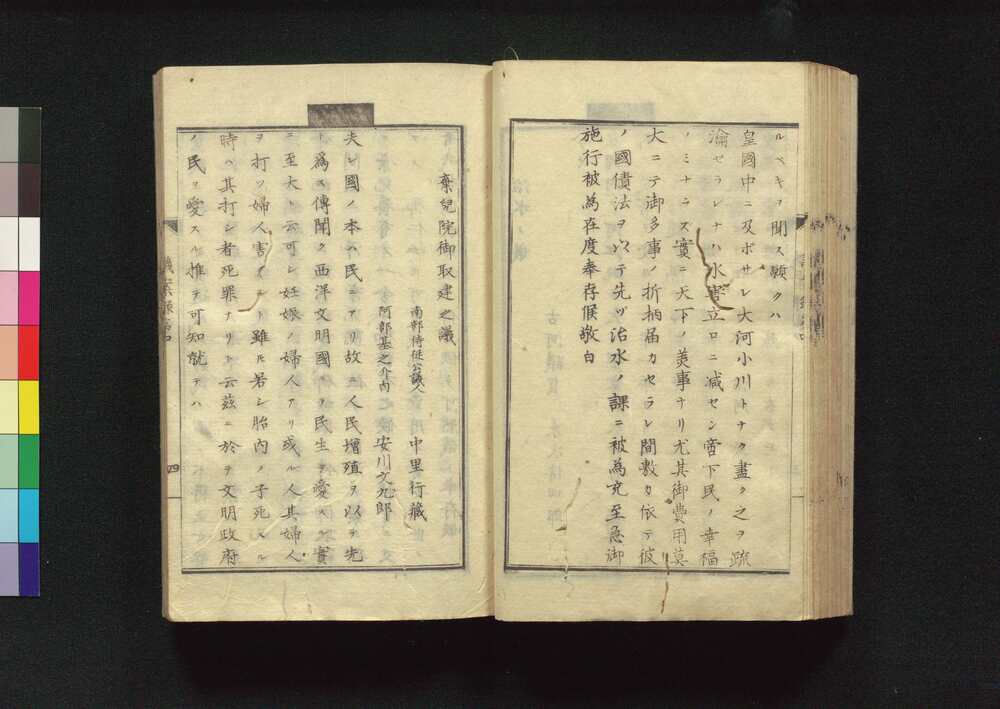 ルヘキヲ聞ス願クハ
皇國中ニ及ボサレ大河小川トナク盡ク之ヲ疏
瀹セラレナハ水害立ロニ减セン啻下民ノ幸福
ノミナラス實ニ天下ノ美事ナリ尤其御費用莫
大ニテ御多事ノ折柄届カセラレ間敷カ依テ彼
ノ國債法ヲ以テ先ツ治水ノ課ニ被為充至急御
施行被為在度奉存候敬白
棄兒院御取建之議
南部侍従公議人 中里行藏
阿部基之介内 安川文九郎
夫レ國ノ本ハ民ニアリ故ニ人民增殖ヲ以テ先
ト為ス傳聞ク西洋文明國ノ民生ヲ愛スル實
ニ至大ト云可シ妊娠ノ婦人アリ或ル人其婦人
ヲ打ツ婦人害ナシト雖モ若シ胎內ノ子死スル
時ハ其打シ者死罪ナリト云茲ニ於テ文明政府
ノ民ヲ愛スル惟テ可知就テハ
四